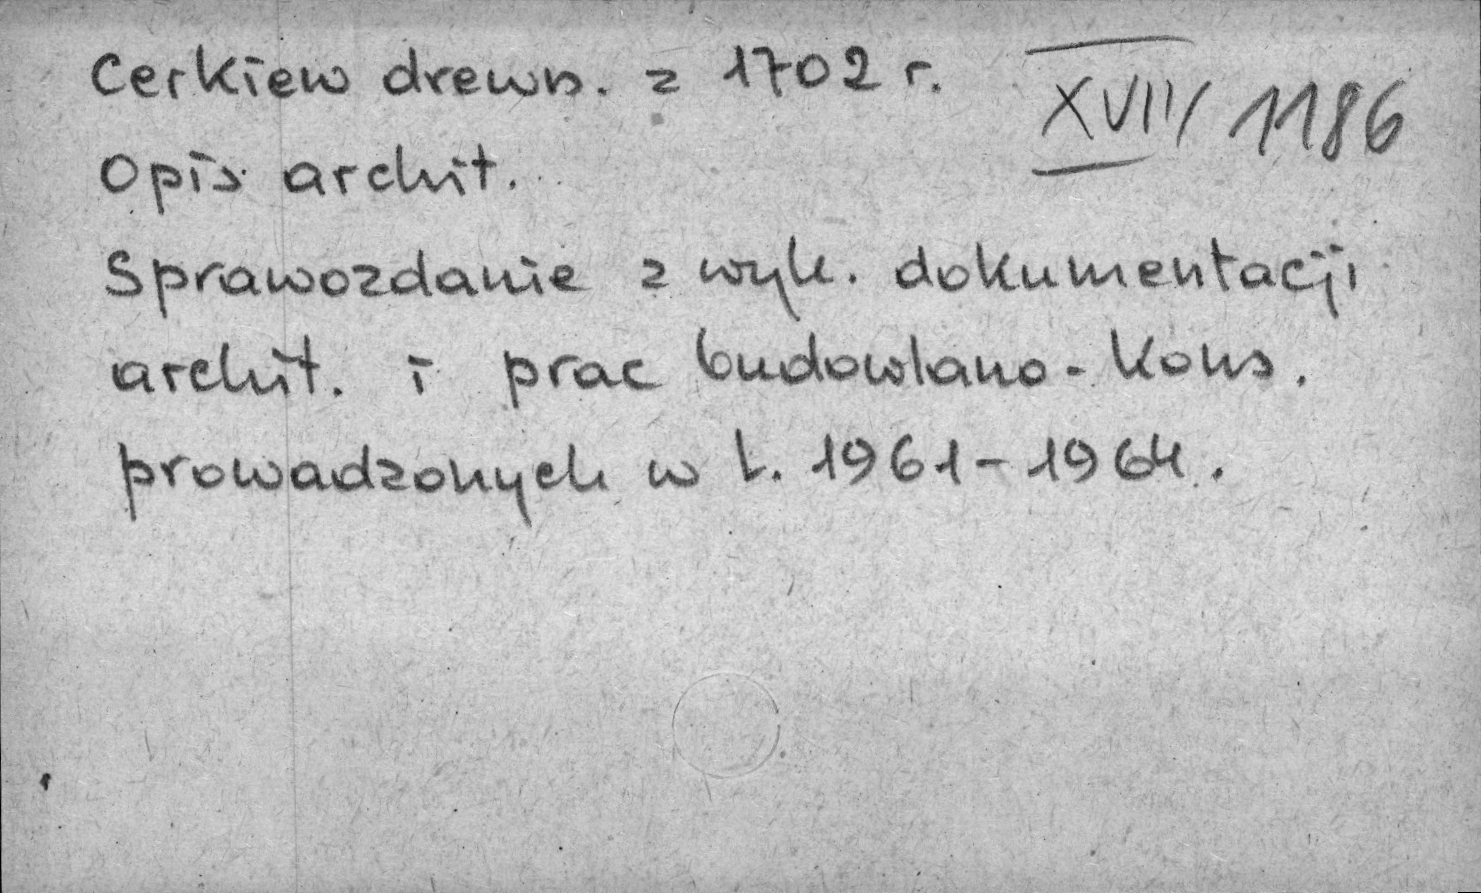 Cerkiew drewn. z 1702 r.
XVIII/1186
Opis archit.
Sprawozdanie z wyk. dokumentacji
archit. i prac budowlano-kons.
prowadzonych w l. 1961-1964.